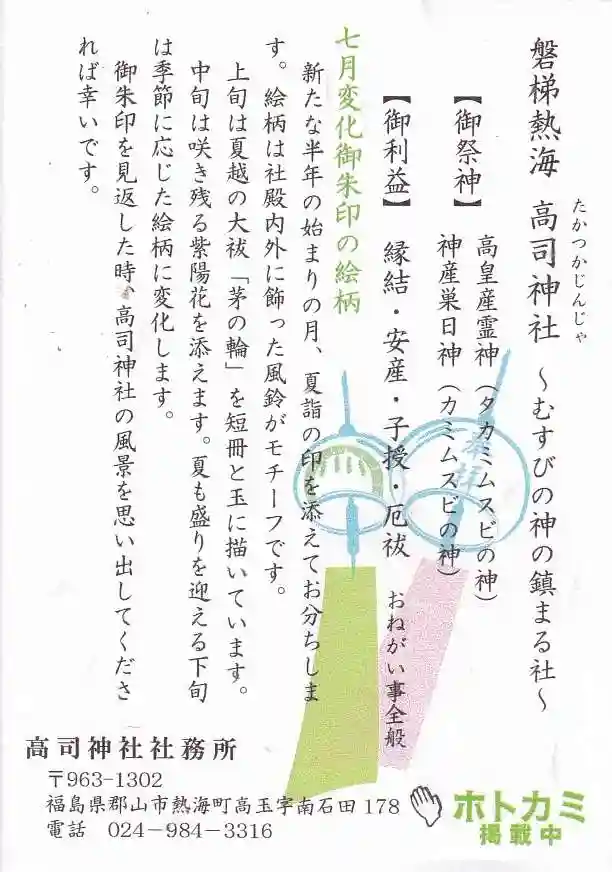 磐梯熱海 高司神社 〜むすびの神の鎮まる社〜
たかつかじんじゃ
【御祭神】 高皇産霊神(タカミムスビの神)
神産巣日神(カミムスビの神)
【御利益】 縁結・安産・子授・厄祓 おねがい事全般
七月変化御朱印の絵柄
新たな半年の始まりの月、夏詣の印を添えてお分ちしま
す。絵柄は社殿内外に飾った風鈴がモチーフです。
上旬は夏越の大祓「茅の輪」を短冊と玉に描いています。
中旬は咲き残る紫陽花を添えます。夏も盛りを迎える下旬
は季節に応じた絵柄に変化します。
御朱印を見返した時、高司神社の風景を思い出してくださ
れば幸いです。
高司神社社務所
〒963-1302
福島県郡山市熱海町高玉字南石田178
電話 024-984-3316
ホトカミ
掲載中
奉拝